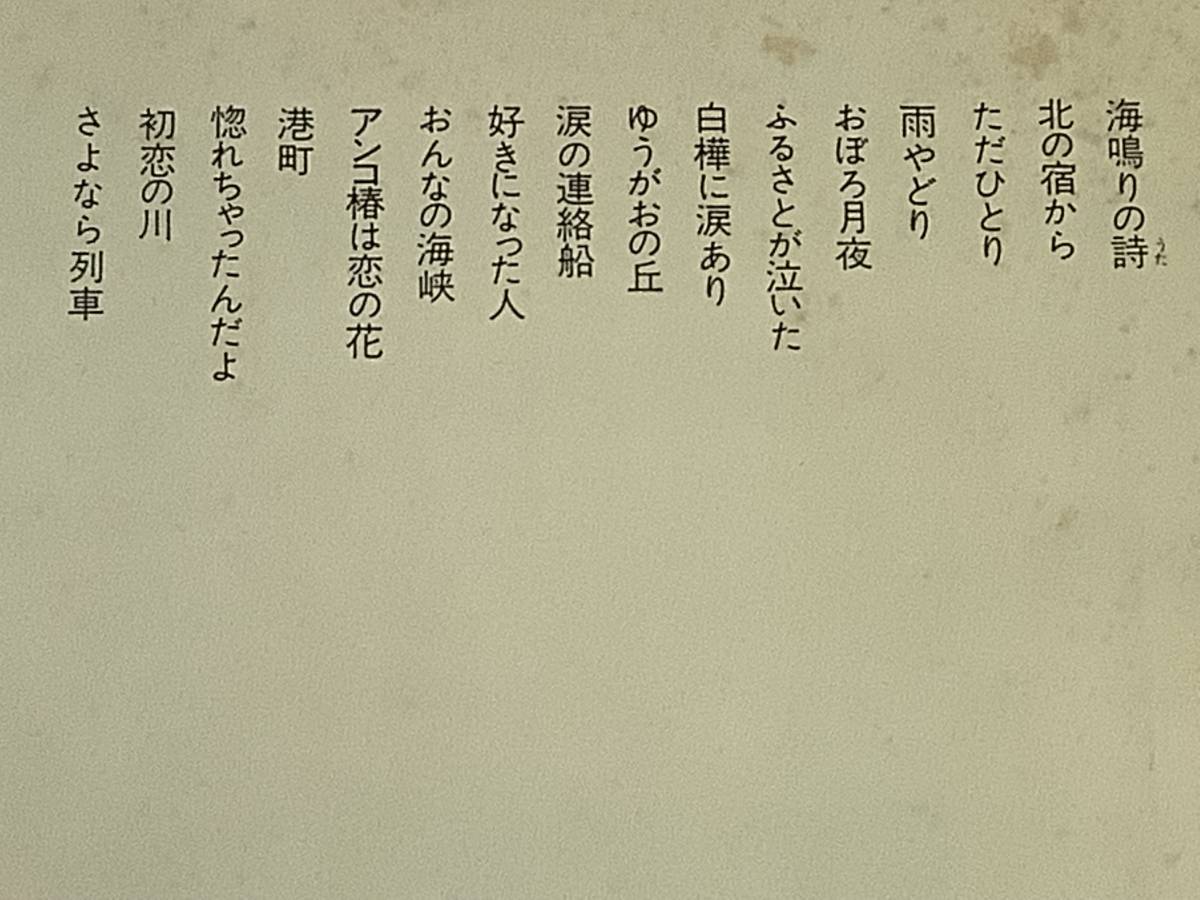 海鳴りの詩
うた
北の宿から
ただひとり
雨やどり
おぼろ月夜
ふるさとが泣いた
白樺に涙あり
ゆうがおの丘
涙の連絡船
好きになった人
おんなの海峡
アンコ椿は恋の花
港町
惚れちゃったんだよ
初恋の川
さよなら列車